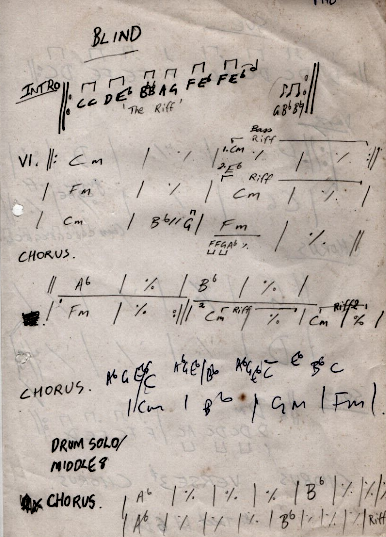 BLIND
INTRO ||: CC DE♭ B♭B♮ AG FE♭ FE♭ GB♭B♮G :||
'The Riff'
Bass Riff
V1. ||: Cm | ٪ | 1. Cm ٪ :||
2. E♭
| Fm | ٪ | Cm Riff |
| Cm | B♭ // G | Fm | ٪ ||
FFGA♭ ٪
CHORUS.
|| A♭ | ٪ | B♭ | ٪ |
| Fm | ٪ :|| 2 Cm Riff ٪ | Cm Riff 2 | ٪ |
CHORUS. A♭ G E♭ C A♭ G E♭ B♭ A♭ G E♭ C E♭ B♭ C
| Cm | B♭ | Gm | Fm |
DRUM SOLO/
MIDDLE 8
CHORUS. | A♭ | ٪ | ٪ | ٪ | B♭ | ٪ | ٪ |
| A♭ | ٪ | ٪ | ٪ | B♭ | ٪ | ٪ | Riff